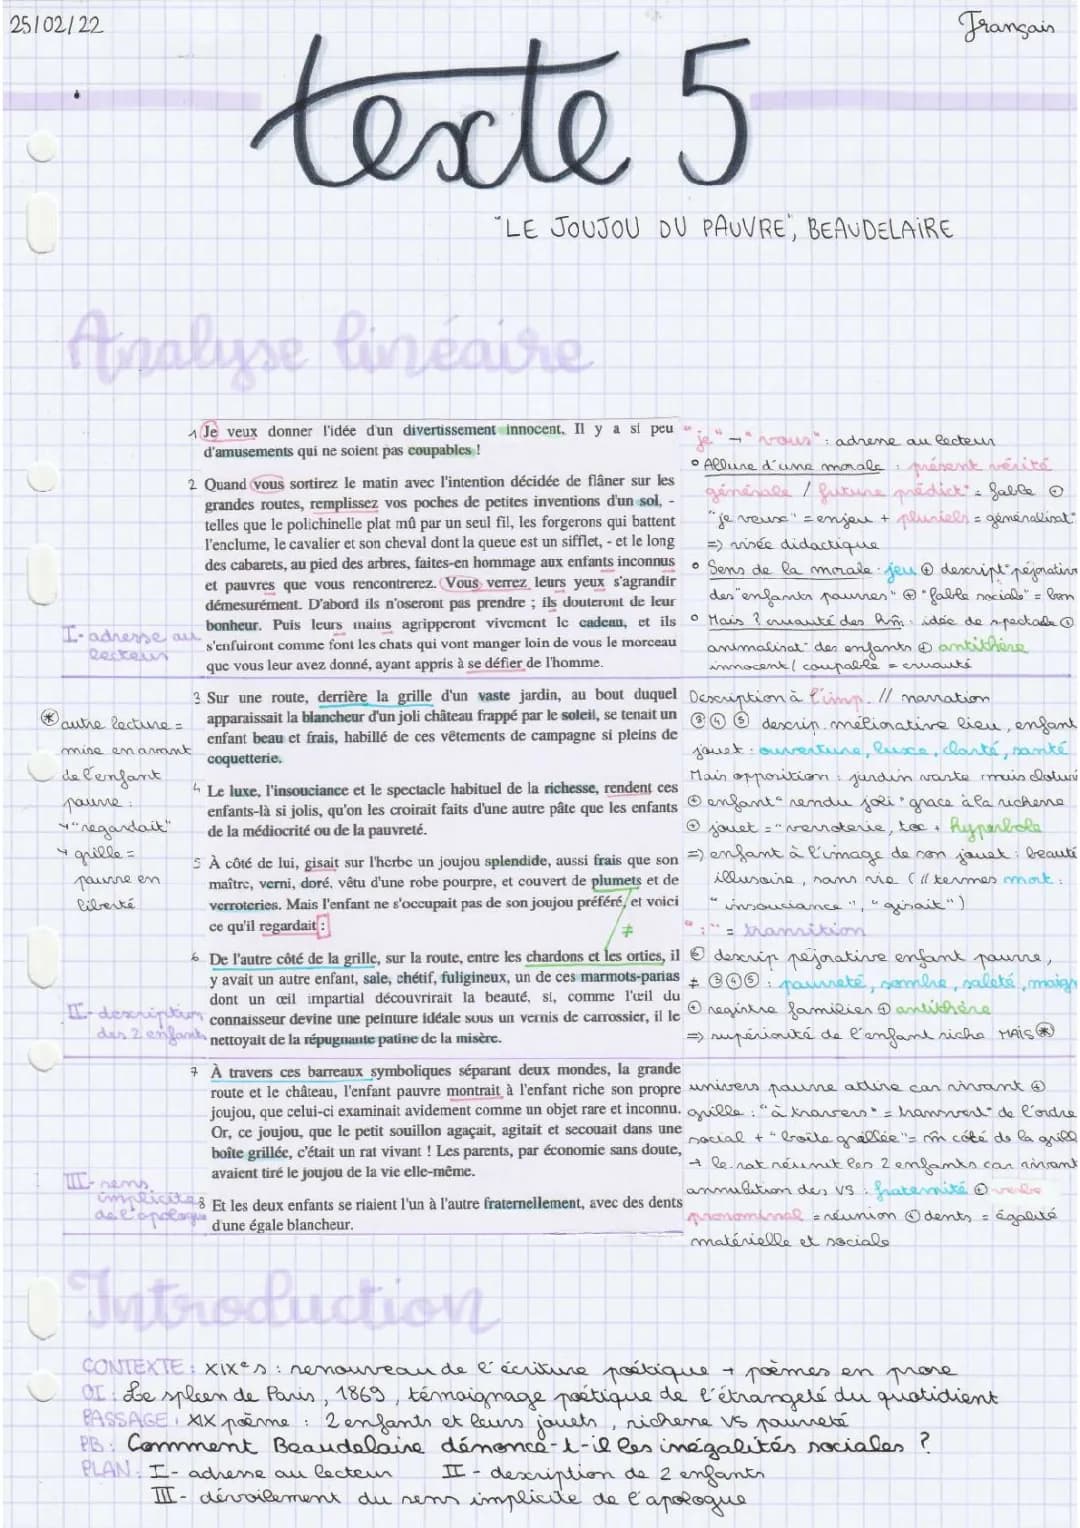 25/02/22
Français
texte 5
"LE JOUJOU DU PAUVRE", BEAUDELAIRE
Analyse linéaire
1 Je veux donner l'idée d'un divertissement innocent. Il y a si peu
d'amusements qui ne soient pas coupables !
2 Quand vous sortirez le matin avec l'intention décidée de flâner sur les
grandes routes, remplissez vos poches de petites inventions d'un sol, -
telles que le polichinelle plat mû par un seul fil, les forgerons qui battent
l'enclume, le cavalier et son cheval dont la queue est un sifflet, - et le long
des cabarets, au pied des arbres, faites-en hommage aux enfants inconnus
et pauvres que vous rencontrerez. Vous verrez leurs yeux s'agrandir
démesurément. D'abord ils n'oseront pas prendre ; ils douteront de leur
bonheur. Puis leurs mains agripperont vivement le cadeau, et ils
s'enfuiront comme font les chats qui vont manger loin de vous le morceau
que vous leur avez donné, ayant appris à se défier de l'homme.
"je" → "vous" : adresse au lecteur
° Allure d'une morale : présent vérité
générale / future prédict° = fable ⊕
"je veux" = enjeu + pluriels = généralisat°
=> visée didactique
° Sens de la morale : jeu ⊕ descript° péjorative
des "enfants pauvres" ⊕ "fable sociale" = bon
° Mais ? cruauté des hm : idée de spectacle ⊕
animalisat° des enfants ⊕ antithèse
innocent / coupable = cruauté
I- adresse au
lecteur
3 Sur une route, derrière la grille d'un vaste jardin, au bout duquel
apparaissait la blancheur d'un joli château frappé par le soleil, se tenait un
enfant beau et frais, habillé de ces vêtements de campagne si pleins de
coquetterie.
4 Le luxe, l'insouciance et le spectacle habituel de la richesse, rendent ces
enfants-là si jolis, qu'on les croirait faits d'une autre pâte que les enfants
de la médiocrité ou de la pauvreté.
5 À côté de lui, gisait sur l'herbe un joujou splendide, aussi frais que son
maître, verni, doré, vêtu d'une robe pourpre, et couvert de plumets et de
verroteries. Mais l'enfant ne s'occupait pas de son joujou préféré, et voici
ce qu'il regardait :
≠
6 De l'autre côté de la grille, sur la route, entre les chardons et les orties, il
y avait un autre enfant, sale, chétif, fuligineux, un de ces marmots-parias
dont un œil impartial découvrirait la beauté, si, comme l'œil du
connaisseur devine une peinture idéale sous un vernis de carrossier, il le
nettoyait de la répugnante patine de la misère.
Description à l'imp. // narration
③④⑤ descrip. méliorative lieu, enfant
jouet : ouverture, luxe, clarté, santé
Mais opposition : jardin vaste mais cloturé
⊕ enfant "rendu joli" grace à la richesse
⊕ jouet = "verroterie, toc + hyperbole
=> enfant à l'image de son jouet : beauté
illusoire, sans vie (// termes mort :
"insouciance", "gisait")
":" = transition
⊕ descrip péjorative enfant pauvre,
≠ ③④⑤ : pauvreté, sombre, saleté, maigre
⊕ registre familier ⊕ antithèse
=> supériorité de l'enfant riche MAIS ⊛
⊛ autre lecture =
mise en avant
de l'enfant
pauvre :
↳ "regardait"
↳ grille =
pauvre en
liberté
II- description
des 2 enfants
7 À travers ces barreaux symboliques séparant deux mondes, la grande
route et le château, l'enfant pauvre montrait à l'enfant riche son propre
joujou, que celui-ci examinait avidement comme un objet rare et inconnu.
Or, ce joujou, que le petit souillon agaçait, agitait et secouait dans une
boîte grillée, c'était un rat vivant ! Les parents, par économie sans doute,
avaient tiré le joujou de la vie elle-même.
8 Et les deux enfants se riaient l'un à l'autre fraternellement, avec des dents
d'une égale blancheur.
univers pauvre attire car vivant ⊕
grille : "à travers" = transvers° de l'ordre
social + "boîte grillée" = m̂ côté de la grille
→ le rat réunit les 2 enfants car vivant
annulation des VS : fraternité ⊕ verbe
pronominal = réunion ⊕ dents = égalité
matérielle et sociale
III- sens
implicite
de l'apologue
Introduction
CONTEXTE : XIXe s : renouveau de l'écriture poétique → poèmes en prose
OI : Le spleen de Paris, 1869, témoignage poétique de l'étrangeté du quotidient
PASSAGE : XIX poème : 2 enfants et leurs jouets, richesse VS pauvreté
PB : Comment Beaudelaire dénonce-t-il les inégalités sociales ?
PLAN : I- adresse au lecteur II- description de 2 enfants
III- dévoilement du sens implicite de l'apologue